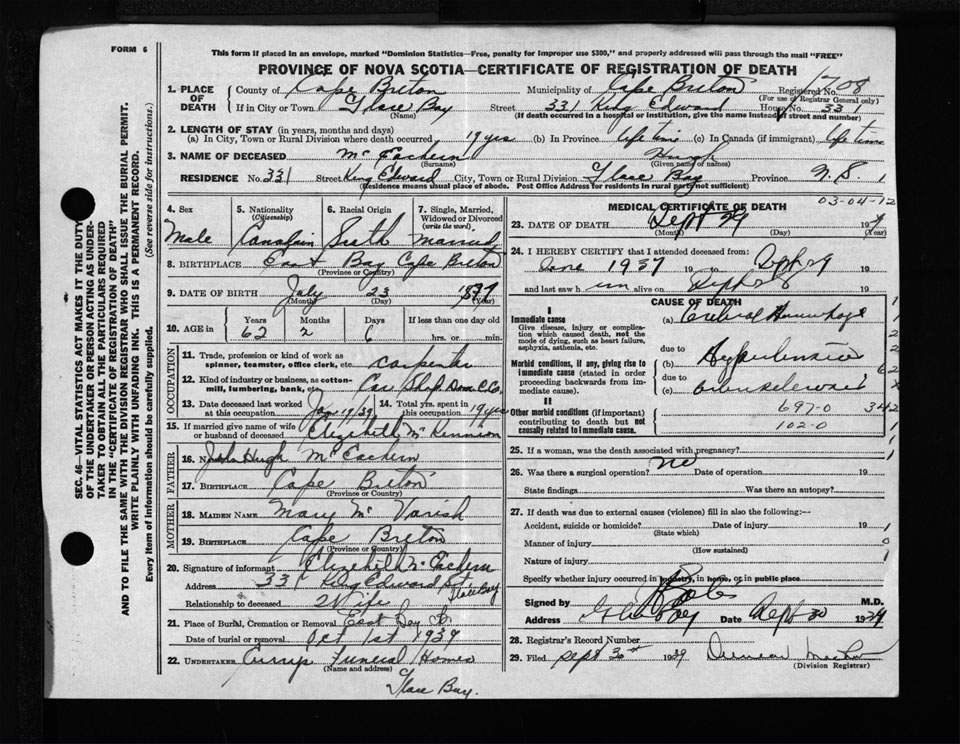 FORM 6
This form if placed in an envelope, marked "Dominion Statistics—Free, penalty for improper use $300," and properly addressed will pass through the mail "FREE"
PROVINCE OF NOVA SCOTIA—CERTIFICATE OF REGISTRATION OF DEATH
SEC. 46—VITAL STATISTICS ACT MAKES IT THE DUTY
OF THE UNDERTAKER OR PERSON ACTING AS UNDER-
TAKER TO OBTAIN ALL THE PARTICULARS REQUIRED
IN THE "CERTIFICATE OF REGISTRATION OF DEATH"
AND TO FILE THE SAME WITH THE DIVISION REGISTRAR WHO SHALL ISSUE THE BURIAL PERMIT.
WRITE PLAINLY WITH UNFADING INK. THIS IS A PERMANENT RECORD.
Every item of information should be carefully supplied. (See reverse side for instructions.)
1. PLACE OF DEATH County of Cape Breton Municipality of Cape Breton Registered No. 1708
(For use of Registrar General only)
If in City or Town Glace Bay Street 331 King Edward House No. 331
(Name) (If death occurred in a hospital or institution, give the name instead of street and number)
2. LENGTH OF STAY (in years, months and days)
(a) In City, Town or Rural Division where death occurred 19 yrs (b) In Province Life time (c) In Canada (if immigrant) Life time
3. NAME OF DECEASED McEachern Hugh
(Surname) (Given name or names)
RESIDENCE No. 331 Street King Edward City, Town or Rural Division Glace Bay Province N.S. 1
(Residence means usual place of abode. Post Office Address for residents in rural parts not sufficient)
4. Sex Male
5. Nationality (Citizenship) Canadian
6. Racial Origin Scotch
7. Single, Married, Widowed or Divorced (write the word) Married
8. BIRTHPLACE East Bay Cape Breton
(Province or Country)
9. DATE OF BIRTH July 23
(Month) (Day) (Year)
10. AGE in Years Months Days If less than one day old
62 2 6 hrs. or min.
OCCUPATION
11. Trade, profession or kind of work as
spinner, teamster, office clerk, etc. carpenter
12. Kind of industry or business, as cotton-
mill, lumbering, bank, etc. Car Shop Dom. C. Co.
13. Date deceased last worked
at this occupation 14. Total yrs. spent in
this occupation 19 yrs
15. If married give name of wife
or husband of deceased Elizabeth McKinnon
FATHER
16. Name John Hugh McEachern
17. BIRTHPLACE Cape Breton
(Province or Country)
MOTHER
18. MAIDEN NAME Mary McVarish
19. BIRTHPLACE Cape Breton
(Province or Country)
20. Signature of informant Elizabeth McEachern
Address 331 King Edward St. Glace Bay
Relationship to deceased Wife
21. Place of Burial, Cremation or Removal East Bay C.B.
Date of burial or removal Oct 1st 1939
22. UNDERTAKER Curry's Funeral Home
(Name and address)
Glace Bay.
MEDICAL CERTIFICATE OF DEATH 03-04-12
23. DATE OF DEATH Sept 29 19
(Month) (Day) (Year)
24. I HEREBY CERTIFY that I attended deceased from:
June 1937 19 to Sept 29 19
and last saw h im alive on Sept 28 19
CAUSE OF DEATH
I
Immediate cause (a) Cerebral Hemorrhage
Give disease, injury or complica-
tion which caused death, not the
mode of dying, such as heart failure,
asphyxia, asthenia, etc.
due to
Morbid conditions, if any, giving rise to
immediate cause (stated in order
proceeding backwards from im-
mediate cause). (b) Hypertension
due to
(c) arteriosclerosis
II
Other morbid conditions (if important)
contributing to death but not
causally related to immediate cause.
697-0 342
102-0
25. If a woman, was the death associated with pregnancy?
26. Was there a surgical operation? No Date of operation 19
State findings Was there an autopsy?
27. If death was due to external causes (violence) fill in also the following:—
Accident, suicide or homicide? Date of injury 19
(State which)
Manner of injury
(How sustained)
Nature of injury
Specify whether injury occurred in industry, in home, or in public place
Signed by M.D.
Address Glace Bay Date Sept 30 19
28. Registrar's Record Number
29. Filed Sept 30th 1939 Duncan
(Division Registrar)